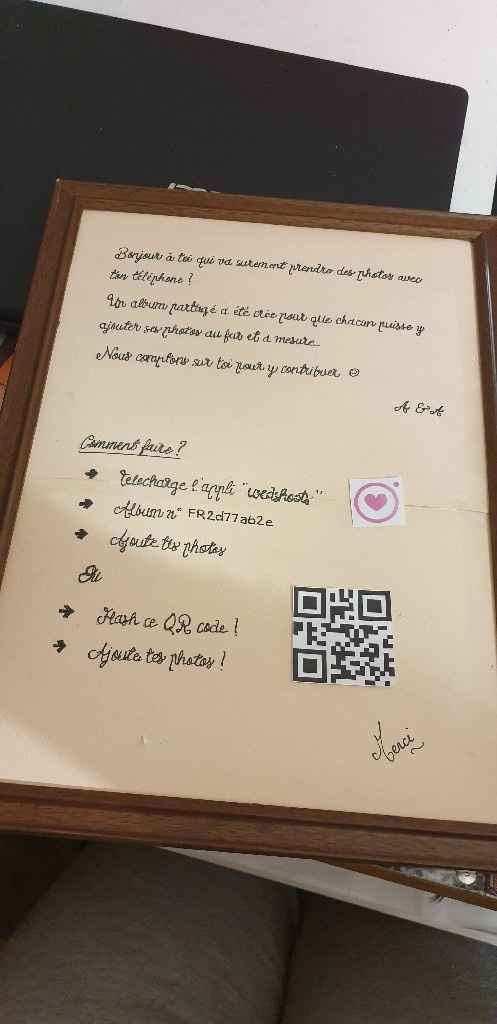 Bonjour à toi qui va surement prendre des photos avec
ton téléphone !
Un album partagé a été crée pour que chacun puisse y
ajouter ses photos au fur et a mesure.
Nous comptons sur toi pour y contribuer ☺
A & A
Comment faire ?
→ Télécharge l'appli "wedshoots"
→ Album n° FR2d77ab2e
→ Ajoute tes photos
Ou
→ Flash ce QR code !
→ Ajoute tes photos !
Merci